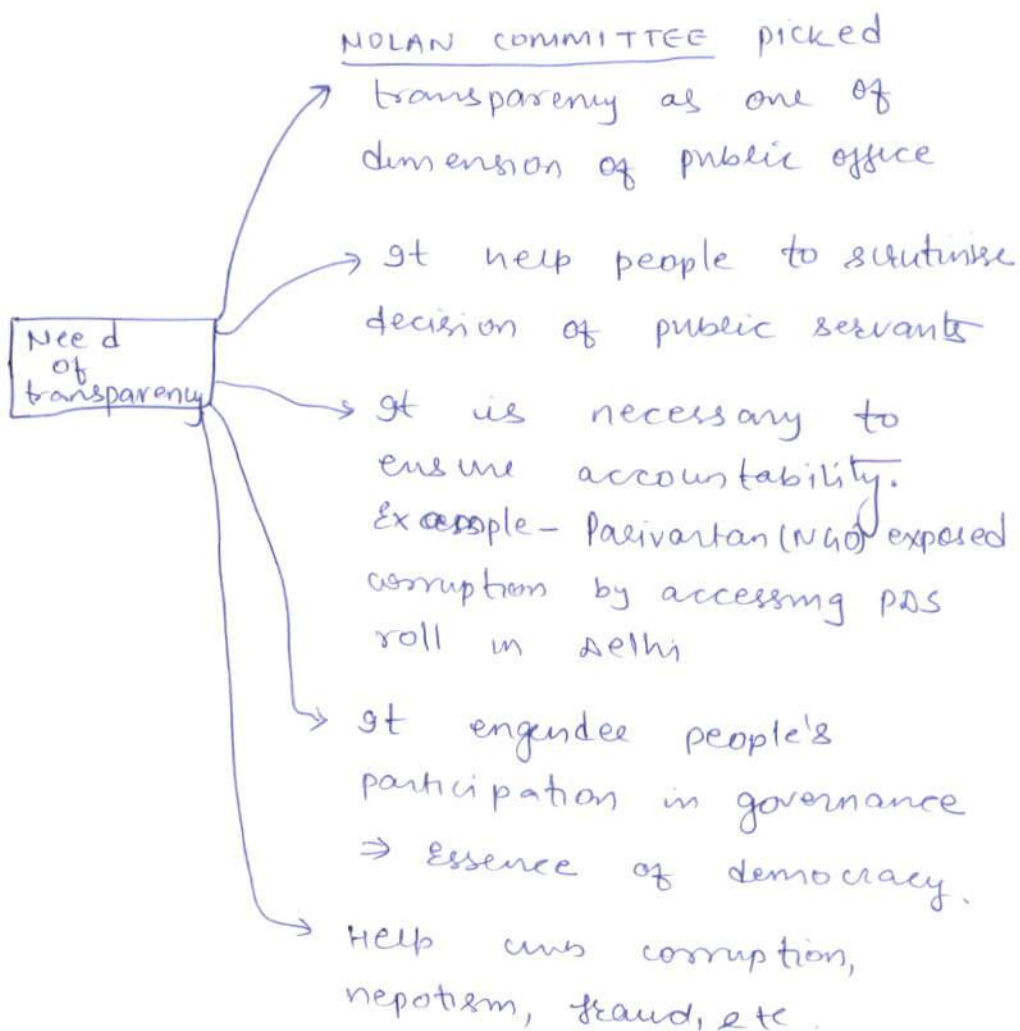 NOLAN COMMITTEE picked
transparency as one of
dimension of public office
It help people to scrutinise
decision of public servants
Need
of
transparency
It is necessary to
ensure accountability.
Example - Parivartan (NGO) exposed
corruption by accessing PDS
roll in Delhi
It engender people's
participation in governance
⇒ Essence of democracy.
Help curb corruption,
nepotism, fraud, etc.